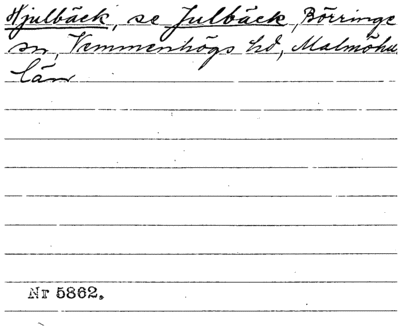 Hjulbäck, se Julbäck, Börringe
sn, Vemmenhögs hd, Malmöhus
län
Nr 5862.